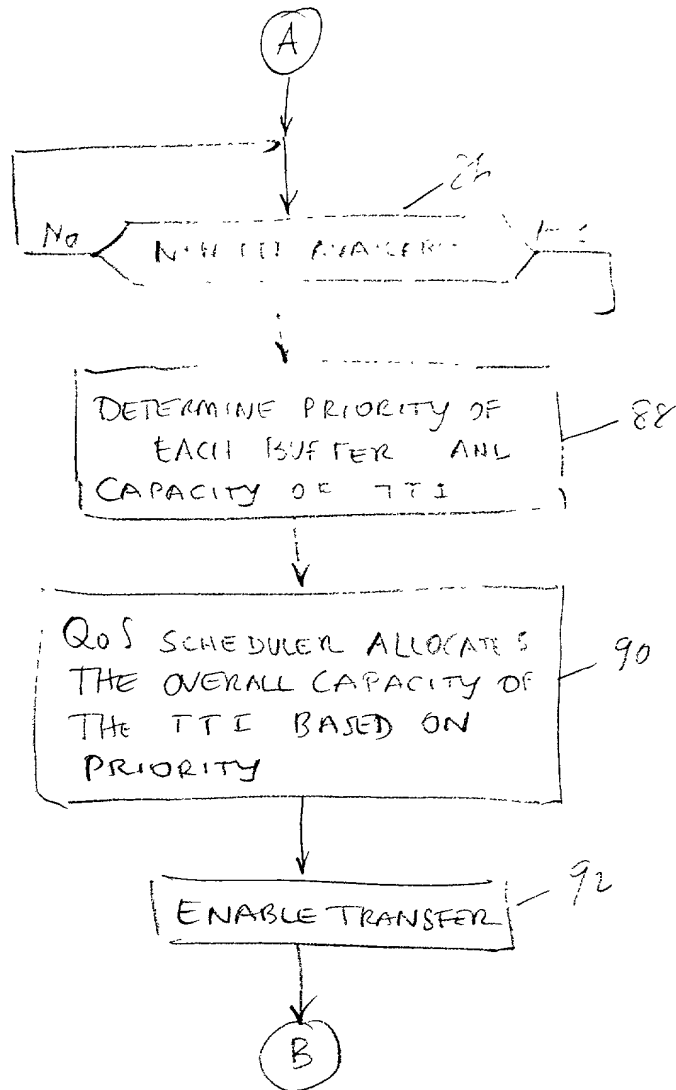 A
No
TTI
DETERMINE PRIORITY OF
EACH BUFFER AND
CAPACITY OF TTI
88
QoS SCHEDULER ALLOCATES
THE OVERALL CAPACITY OF
THE TTI BASED ON
PRIORITY
90
ENABLE TRANSFER
92
B